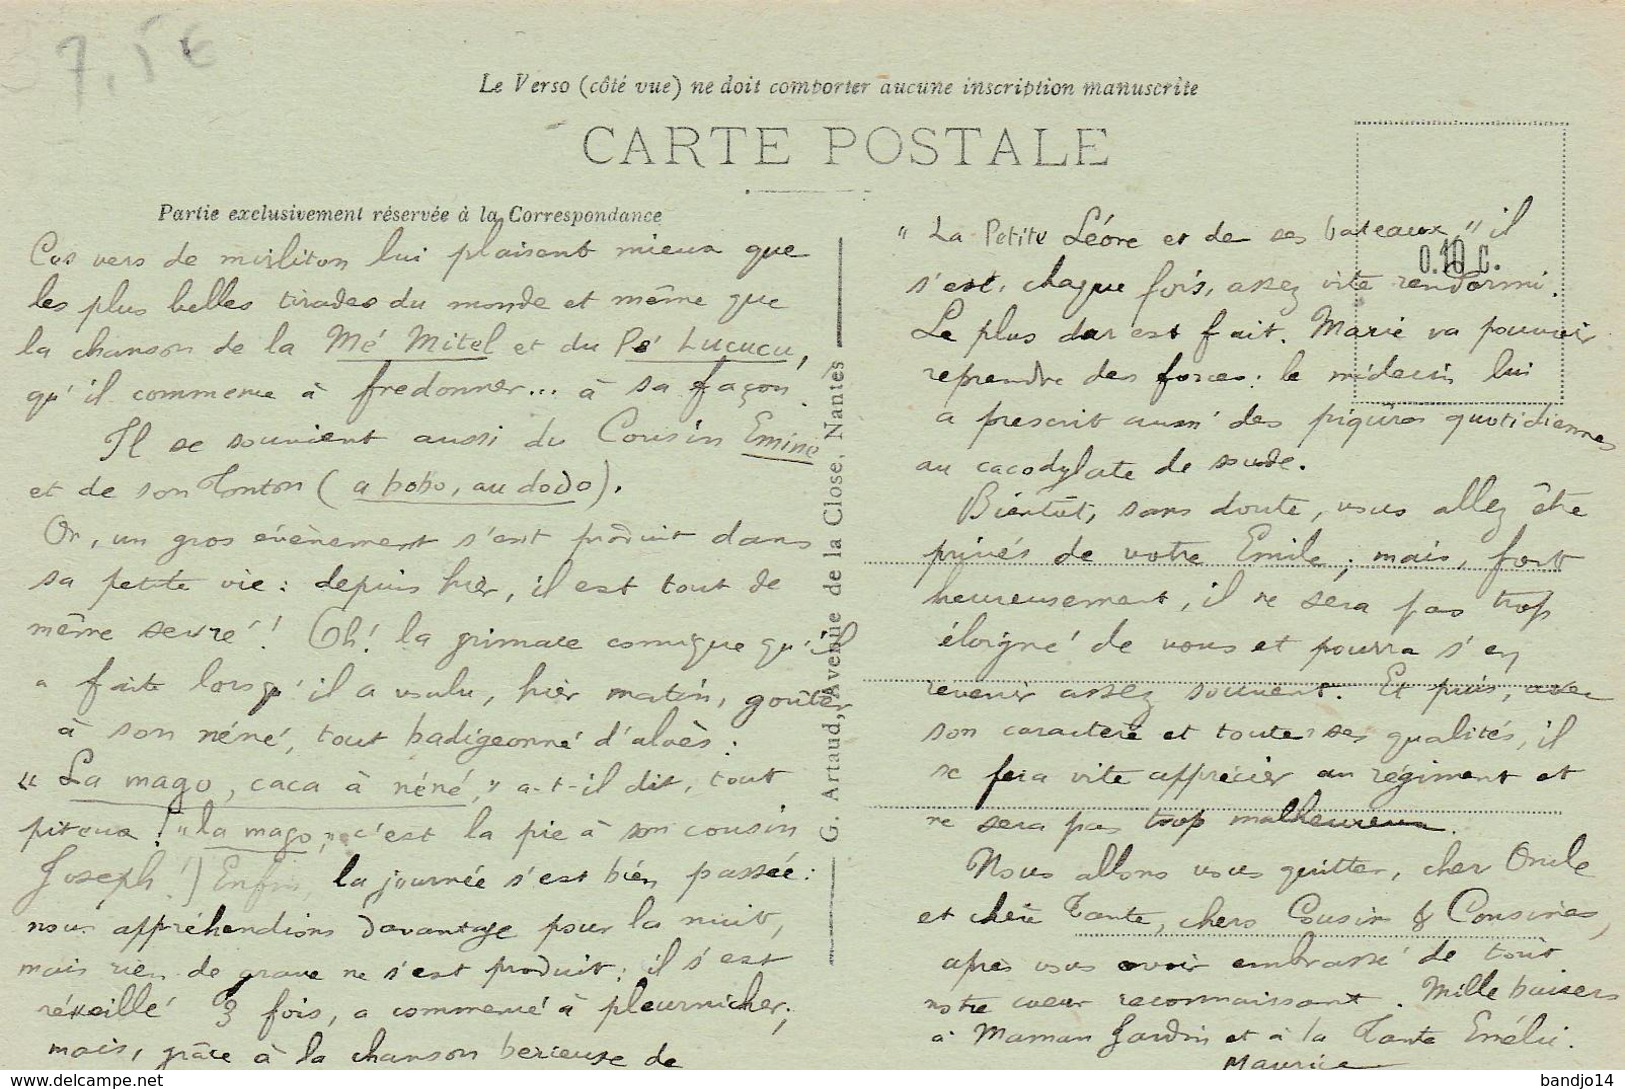 7,5€
Le Verso (côté vue) ne doit comporter aucune inscription manuscrite
CARTE POSTALE
Partie exclusivement réservée à la Correspondance
Ces vers de mirliton lui plaisent mieux que
les plus belles tirades du monde et même que
la chanson de la Mé Mitel et du Pé Lucucu,
qu'il commence à fredonner... à sa façon.
Il se souvient aussi du Cousin Emine
et de son Tonton (a bobo, au dodo).
Or, un gros évènement s'est produit dans
sa petite vie : depuis hier, il est tout de
même sevré ! ! Oh ! la grimace comique qu'il
a faite lorsqu'il a voulu, hier matin, goûter
à son néné, tout badigeonné d'aloès :
« La mago, caca à néné, » a-t-il dit, tout
piteux ! "la mago," c'est la pie à son cousin
Joseph !) Enfin, la journée s'est bien passée :
nous appréhendions davantage pour la nuit,
mais rien de grave ne s'est produit : il s'est
réveillé 3 fois, a commencé à pleurnicher ;
mais, grâce à la chanson berceuse de
G. Artaud, Avenue de la Close, Nantes
"La Petite Léore et de ses bateaux," il
0.10 C.
s'est, chaque fois, assez vite rendormi.
Le plus dur est fait. Marie va pouvoir
reprendre des forces : le médecin lui
a prescrit aussi des piqûres quotidiennes
au cacodylate de soude.
Bientôt, sans doute, vous allez être
privés de votre Emile ; mais, fort
heureusement, il ne sera pas trop
éloigné de vous et pourra s'en
revenir assez souvent. Et puis, avec
son caractère et toutes ses qualités, il
se fera vite apprécier au régiment et
ne sera pas trop malheureux.
Nous allons vous quitter, cher Oncle
et chère Tante, chers Cousin & Cousines,
après vous avoir embrassé de tout
notre cœur reconnaissant. Mille baisers
à Maman Jardin et à la Tante Emélie.
Maurice
bandjo14